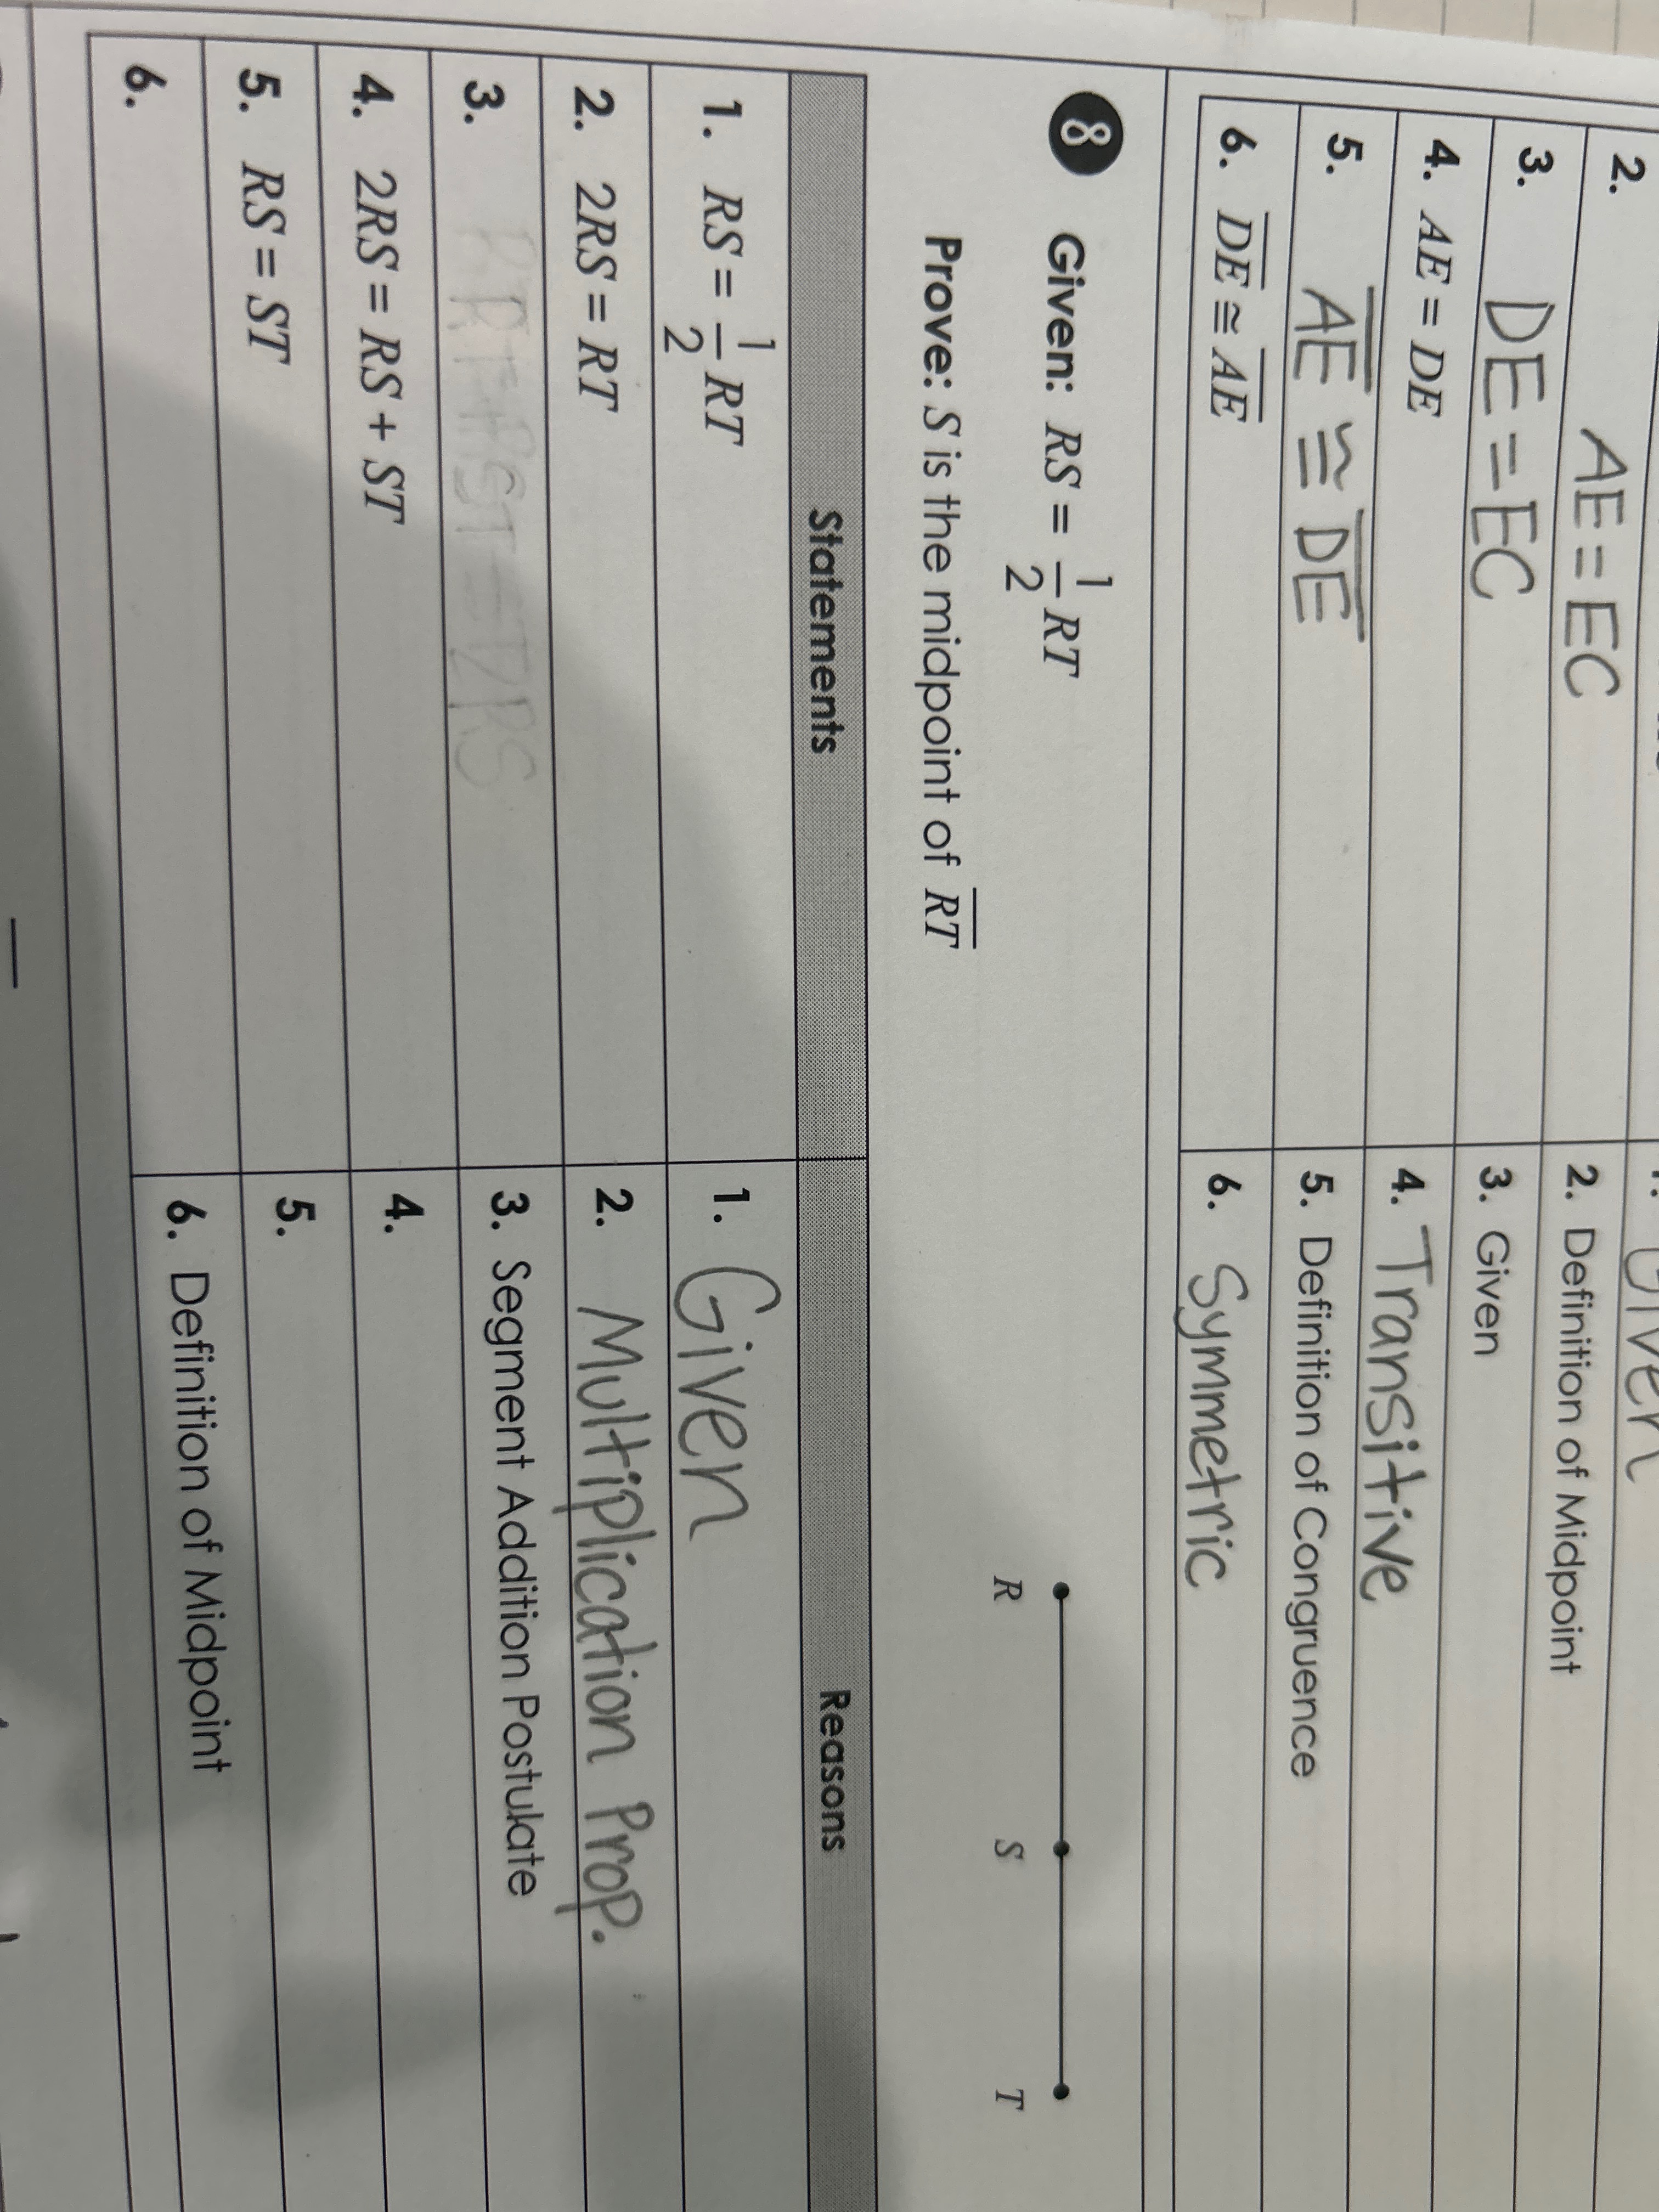 1. Given
2. AE = EC
2. Definition of Midpoint
3. DE = EC
3. Given
4. AE = DE
4. Transitive
5. A̅E̅ ≅ D̅E̅
5. Definition of Congruence
6. D̅E̅ ≅ A̅E̅
6. Symmetric
8 Given: RS = 1/2 RT
Prove: S is the midpoint of R̅T̅
R S T
Statements
Reasons
1. RS = 1/2 RT
1. Given
2. 2RS = RT
2. Multiplication Prop.
3.
3. Segment Addition Postulate
4. 2RS = RS + ST
4.
5. RS = ST
5.
6.
6. Definition of Midpoint